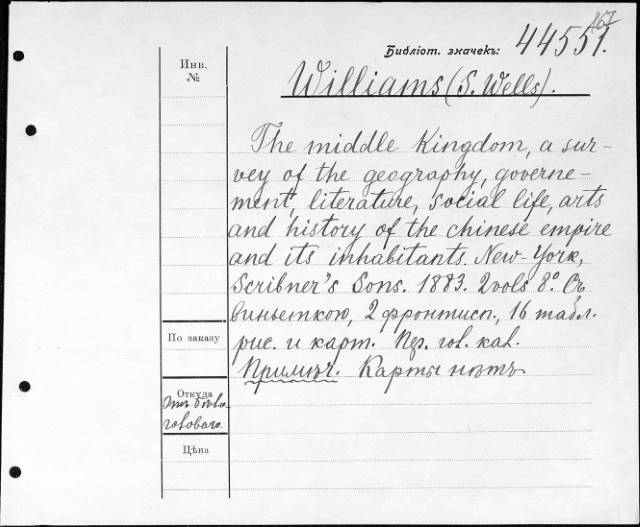 167
Библіот. значекъ: 44551.
Инв.
№
Williams (S. Wells).
The middle Kingdom, a sur-
vey of the geography, governe-
ment, literature, social life, arts
and history of the chinese empire
and its inhabitants. New-York,
Scribner's Sons. 1883. 2 vols 8°. Съ
виньеткою, 2 фронтисп., 16 табл.
рис. и карт. Пер. гол. кал.
Примѣч. Карты нѣтъ
По заказу
Откуда
Отъ
Цѣна